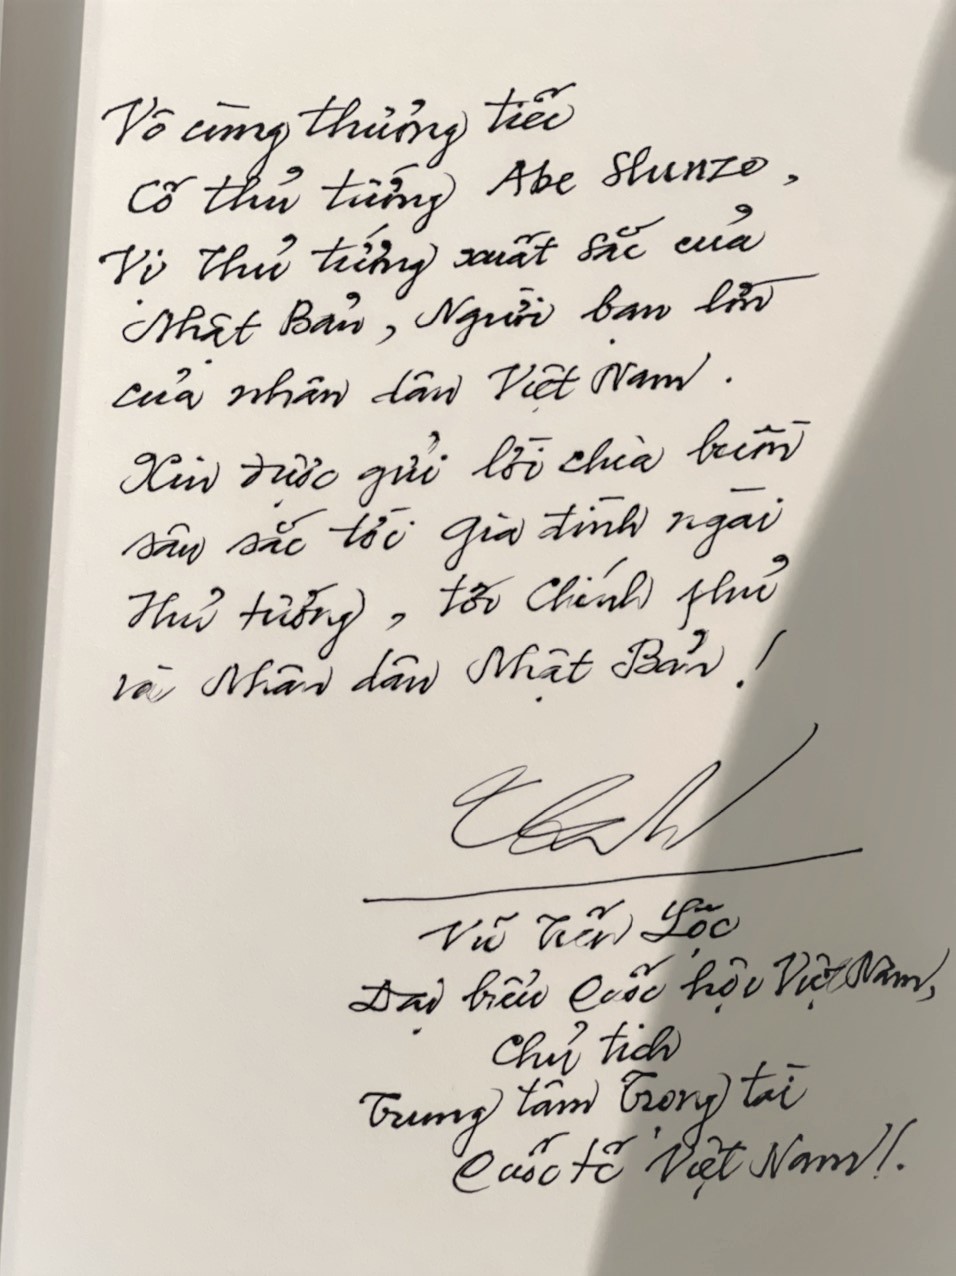 Vô cùng thương tiếc
Cố thủ tướng Abe Shinzo,
Vị Thủ tướng xuất sắc của
Nhật Bản, Người bạn lớn
của nhân dân Việt Nam.
Xin được gửi lời chia buồn
sâu sắc tới gia đình ngài
Thủ tướng, tới Chính phủ
và Nhân dân Nhật Bản!
Vũ Tiến Lộc
Đại biểu Quốc hội Việt Nam,
Chủ tịch
Trung tâm Trọng tài
Quốc tế Việt Nam!.